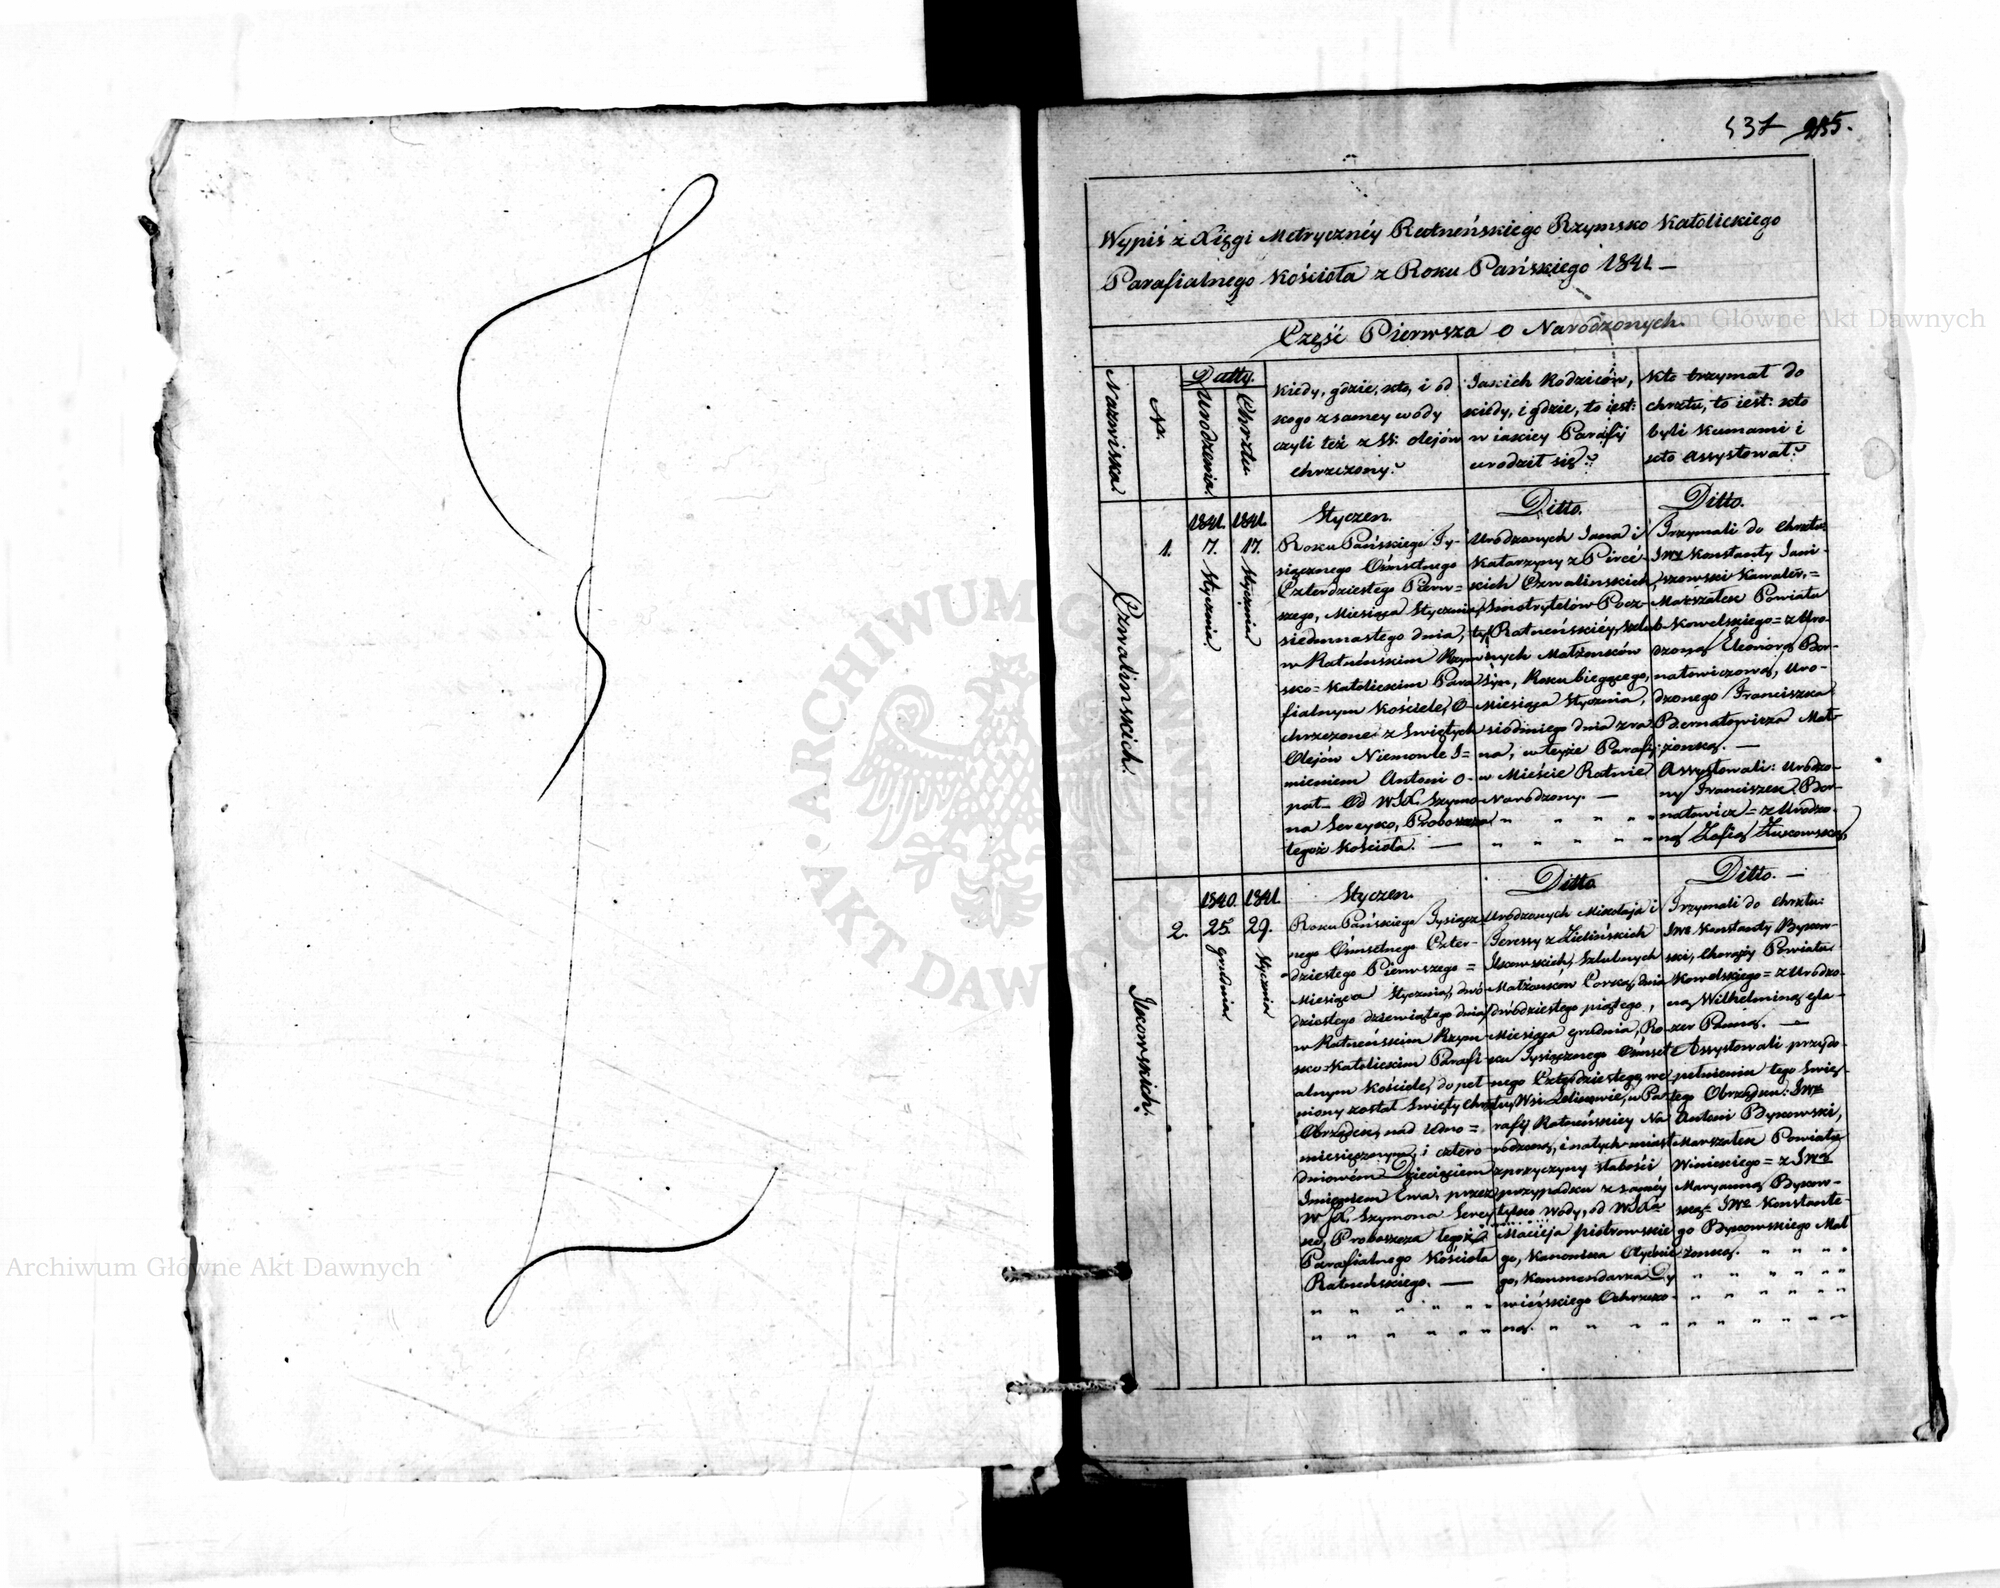 537 255.
Wypis z Xięgi Metrycznéy Ratneńskiego Rzymsko Katolickiego
Parafialnego Kościoła z Roku Pańskiego 1841 —
Część Pierwsza o Narodzonych.
Nazwiska.
Nr.
Datty.
Urodzenia.
Chrztu.
Kiedy, gdzie, kto, i od
kogo z samey wody
czyli też z SS. olejów
chrzczony?
Jakich Rodziców,
kiedy, i gdzie, to iest:
w iakiey Parafij
urodził się?
Kto trzymał do
chrztu, to iest: kto
byli Kumami i
kto Assystował?
Czwalinskich.
1.
1841.
7.
Stycznia.
1841.
17.
Stycznia
Styczeń.
Roku Pańskiego Ty-
siącznego Ośmsetnego
Czterdziestego Pierw=
szego, Miesiąca Stycznia,
siedmnastego dnia,
w Ratneńskim Rzym
sko=Katolickim Para
fialnym Kościele, O-
chrzczone z Swiętych
Olejów Niemowle I=
mieniem Antoni o-
pat. Od WJX. Szymo
na Sereyko, Proboszcza
tegoż Kościoła. —
Ditto.
Urodzonych Jana i
Katarzyny z
skich Czwalinskich,
Smotrytelów Pocz-
ty Ratneńskiéy, szlub-
nych Małżonków
Syn, Roku biegącego,
Miesiąca Stycznia,
siódmego dnia zra
na, w teyże Parafij
w Mieście Ratnie
Narodzony. —
Ditto.
Trzymali do Chrztu:
JWX Konstanty Jani-
szowski Kawaler,=
Marszałek Powiatu
Kowelskiego = z Uro-
dzoną Eleonorą Ber-
natowiczową, Uro-
dzonego Franciszka
Bernatowicza Mał-
żonką. —
Assystowali: Urodzo-
ny Franciszek Ber-
natowicz = z Urodzo-
ną Zofią Żukowską
Ilkowskich.
2.
1840.
25.
grudnia
1841.
29.
Stycznia
Styczeń.
Roku Pańskiego Tysiącz
nego Ośmsetnego Czter-
dziestego Pierwszego =
Miesiąca Stycznia, dwó
dziestego dziewiątego dnia
w Ratneńskim Rzym
sko=Katolickim Parafi
alnym Kościele, dopeł
niony został Swięty Chrztu
Obrządek, nad Edno=
miesięcznym i cztero
dniowém Dziecięciem
Imieniem Ewa, przez
WJX. Szymona Serey
ko, Proboszcza tegoż
Parafialnego Kościoła
Ratneńskiego. —
Ditto
Urodzonych Mikołaja i
Teressy z Zielińskich
Ilkowskich, Szlubnych
Małżonków Corka, dnia
dwódziestego piątego,
Miesiąca grudnia, Ro-
ku Tysiącznego Ośmset
nego Czterdziestego, we
Wsi w Pa-
rafij Ratneńskiey Na
rodzona, i natychmiast
zprzyczyny słabości
przypadku z saméy
tylko wody, od WJXa
Macieja Piotrowskie
go, Kanonika Ołyckie
go, Kommendarza Dy
wińskiego Ochrzczo-
na.
Ditto. —
Trzymali do Chrztu:
JWo Konstanty Bykow-
ski, Chorąży Powiatu
Kowelskiego = z Urodzo-
ną Wilhelminą Gla-
zer Panną. —
Assystowali przy do-
pełnieniu tego Swię-
tego Obrzędu: JWo
Antoni Bykowski,
Marszałek Powiatu
Winickiego = z JWą
Maryanną Bykow-
ską JWo Konstante-
go Bykowskiego Mał
żonką.
Archiwum Główne Akt Dawnych
Archiwum Główne Akt Dawnych